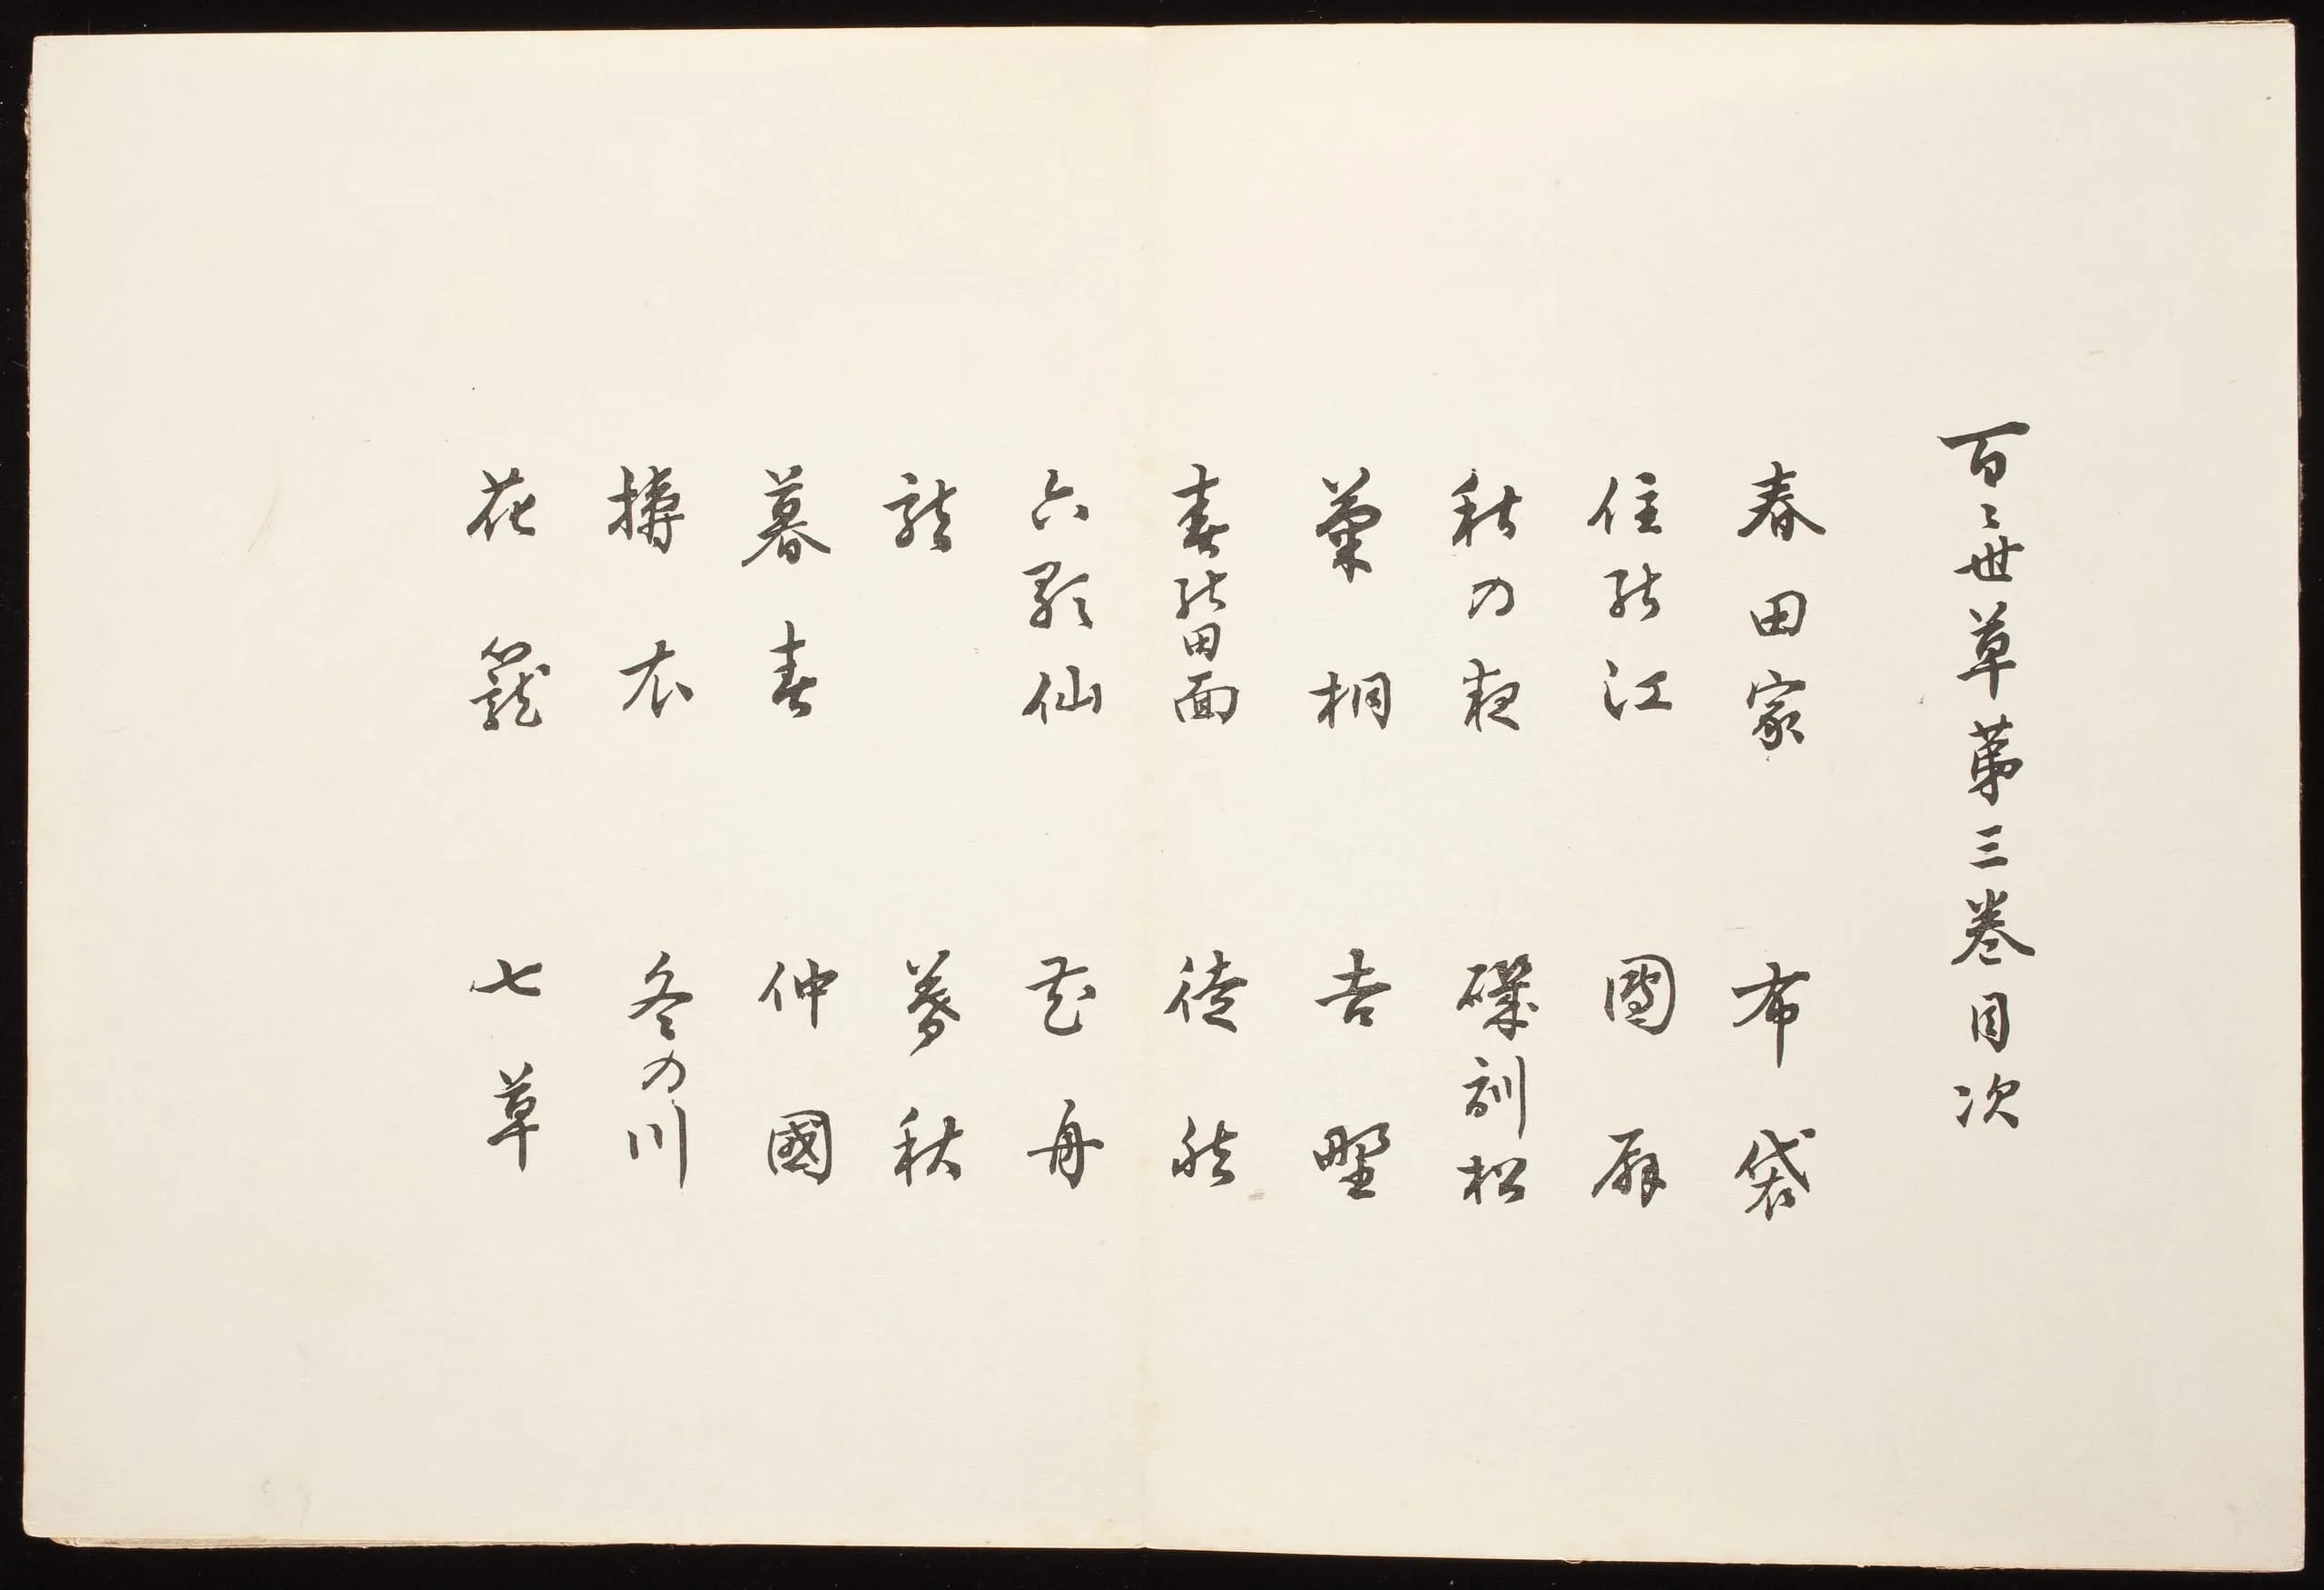 百〻世草第三巻目次
春田家 布袋
住能江 團扇
秋の夜 磯訓松
菊桐 吉野
春能田面 徒然
六歌仙 花舟
龍 暮秋
暮春 仲國
擣衣 冬の川
花籠 七草